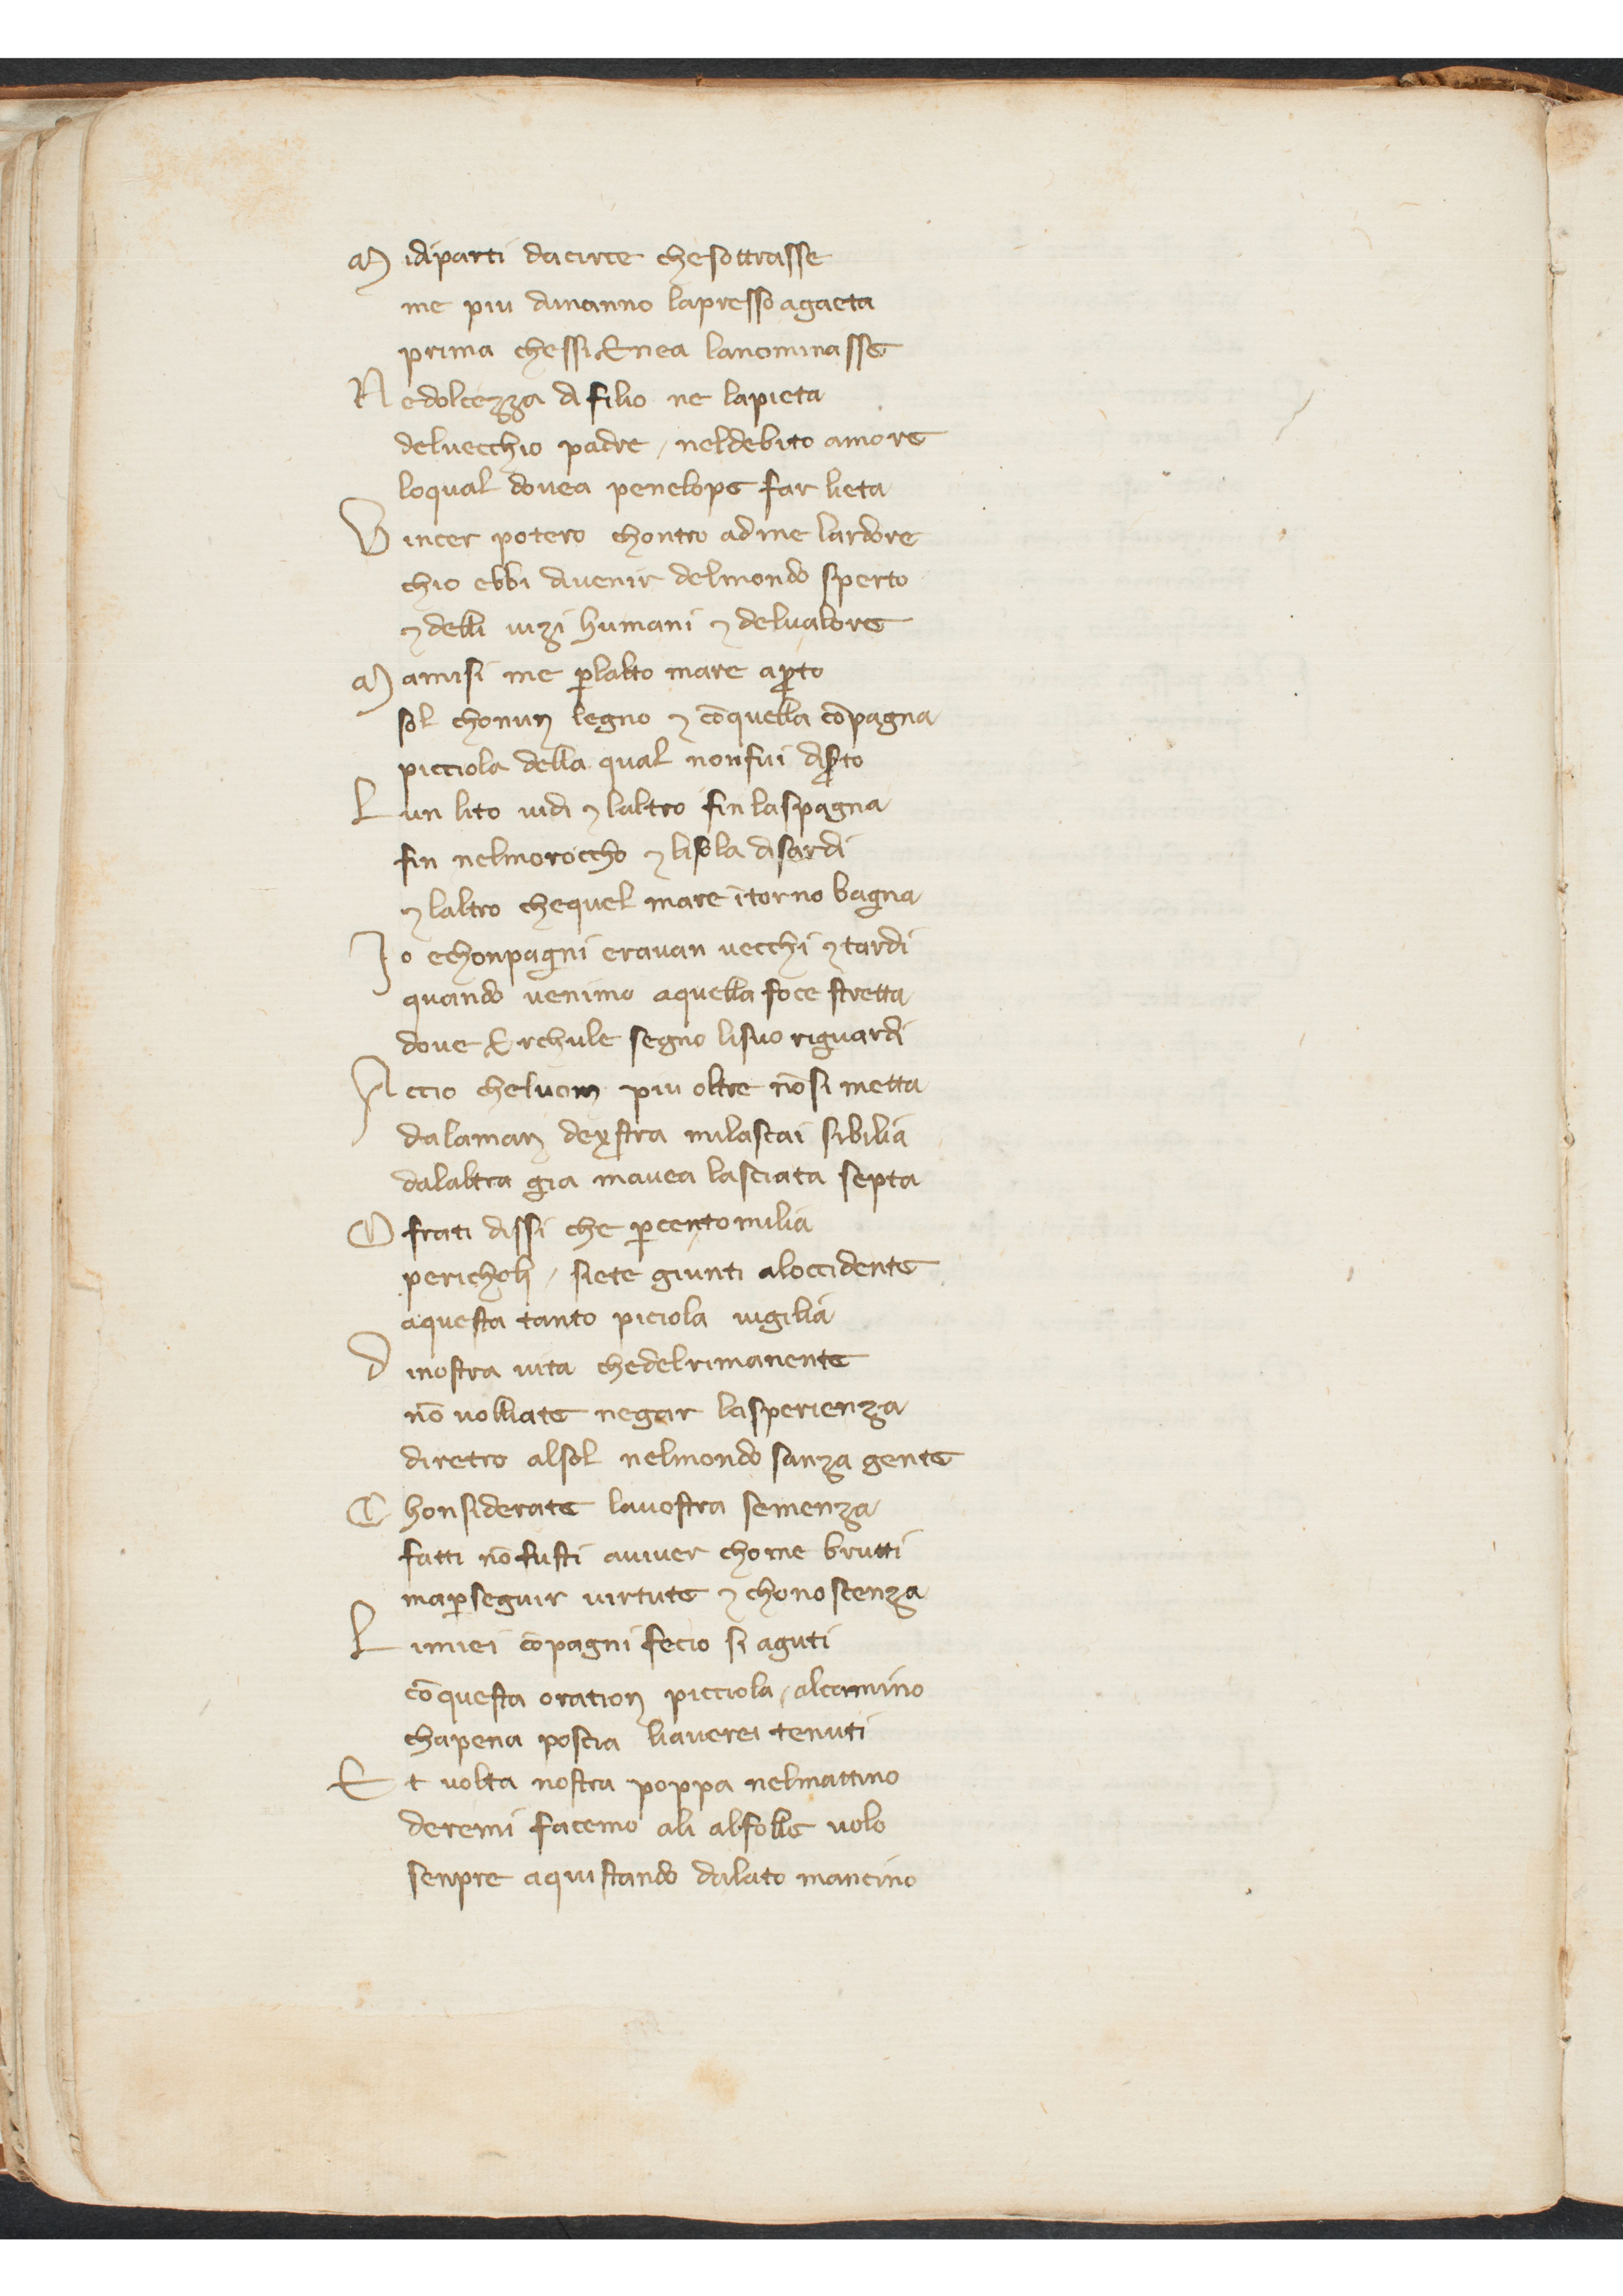 M idiparti dacirce chesottrasse
me piu dunanno lapresso agaeta
prima chessi Enea lanominasse
N edolcezza di filio ne lapieta
deluecchio padre / neldebito amore
loqual douea penelope far lieta
V incer potero chontro adme lardore
chio ebbi diuenir delmondo sperto
⁊ delli uizi humani ⁊ delualore
M amisi me ꝑlalto mare aꝑto
sol chonun legno ⁊ cōquella cōpagna
picciola della qual nonfui disꝑto
L un lito uidi ⁊ laltro fin laspagna
fin nelmoroccho ⁊ lisola disardi
⁊ laltro chequel mare ītorno bagna
I o echonpagni erauan uecchi ⁊ tardi
quando uenimo aquella foce stretta
doue Erchule segno lisuo riguardi
A ccio cheluom piu oltre nōsi metta
dalaman dexstra milascai sibilia
dalaltra gia mauea lasciata septa
O frati dissi che ꝑcento milia
pericholi / siete giunti aloccidente
aquesta tanto piciola uigilia
D inostra uita chedelrimanente
nō uolliate negar lasperienza
diretro alsol nelmondo sanza gente
C honsiderate lauostra semenza
fatti nō fusti auiuer chome brutti
maꝑseguir uirtute ⁊ chonoscenza
L imiei cōpagni fecio si aguti
cōquesta oration picciola / alcamino
chapena poscia liauerei tenuti
E t uolta nostra poppa nelmattino
deremi facemo ali alfolle uolo
senpre aquistando dalato mancino